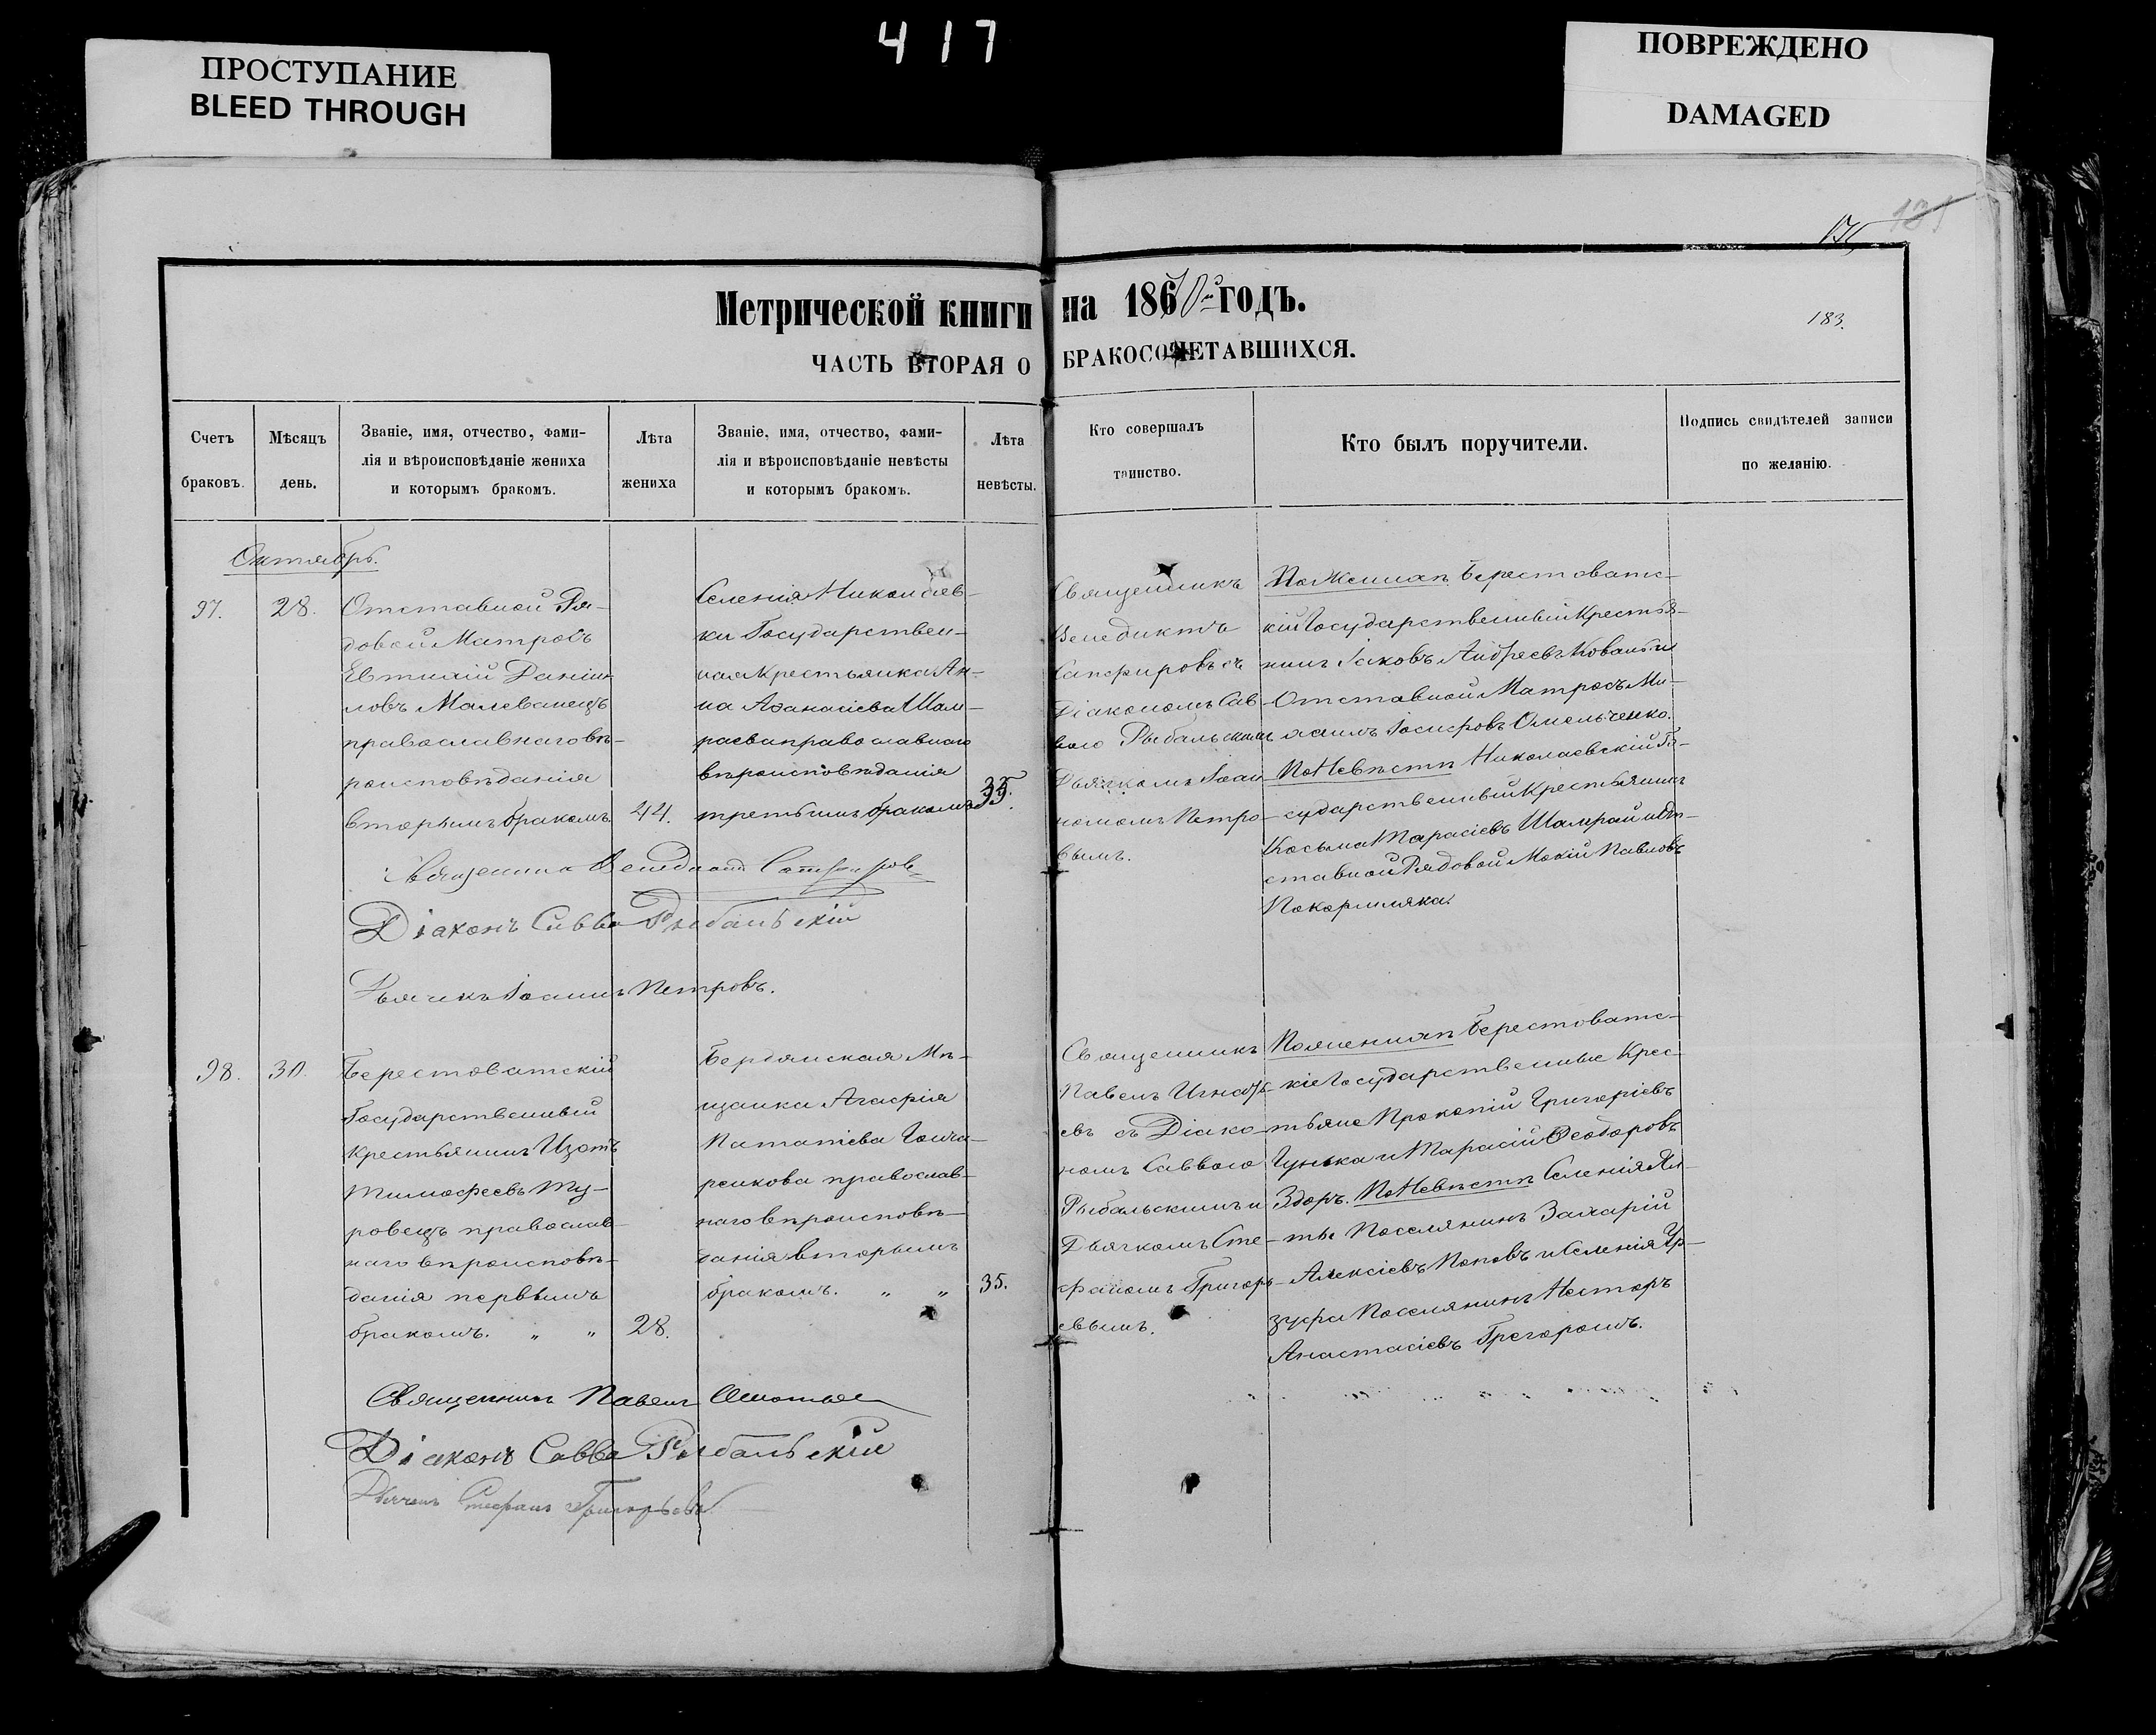 417
ПРОСТУПАНИЕ
BLEED THROUGH
ПОВРЕЖДЕНО
DAMAGED
183.
Метрической книги на 1870й годъ.
ЧАСТЬ ВТОРАЯ О БРАКОСОЧЕТАВШИХСЯ.
Счетъ браковъ.
Мѣсяцъ день.
Званіе, имя, отчество, фами-
лія и вѣроисповѣданіе жениха
и которымъ бракомъ.
Лѣта жениха
Званіе, имя, отчество, фами-
лія и вѣроисповѣданіе невѣсты
и которымъ бракомъ.
Лѣта невѣсты.
Кто совершалъ таинство.
Кто былъ поручители.
Подпись свидѣтелей записи
по желанію.
Октябрь.
97.
28.
Отставной Ря-
довой Матросъ
Евтихій Даніи-
ловъ Малеванецъ
православнаго вѣ-
роисповѣданія
вторымъ бракомъ.
44.
Селенія Николаев-
ки Государствен-
ная Крестьянка Ан-
на Аѳанасіева Шам-
раева православнаго
вѣроисповѣданія
третьимъ бракомъ
35.
Священникъ
Венедиктъ
Сапфировъ съ
Діакономъ Сав-
вою Рыбальскимъ
Дьячкомъ Іоан-
номъ Петро-
вымъ.
По Женихѣ Берестоватс-
кій Государственный Крестья-
нинъ Іаковъ Андреевъ Коваль и
Отставной Матросъ Ми-
хаилъ Іосифовъ Омельченко.
По Невѣстѣ Николаевскій Го-
сударственный Крестьянинъ
Косьма Тарасіевъ Шамрай и От-
ставной Рядовой Мокій Павловъ
Священникъ Венедиктъ Сапфировъ
Діаконъ Савва Рыбальскій
Дьячекъ Іоаннъ Петровъ.
98.
30.
Берестоватскій
Государственный
Крестьянинъ Изотъ
Тимофеевъ Ту-
ровецъ православ-
наго вѣроисповѣ-
данія первымъ
бракомъ. " "
28.
Бердянская Мѣ-
щанка Агафія
Гонча-
ренкова православ-
наго вѣроисповѣ-
данія вторымъ
бракомъ. " "
35.
Священникъ
Павелъ Игнатье-
евъ съ Діако-
номъ Саввою
Рыбальскимъ и
Дьячкомъ Сте-
фаномъ Григорь-
евымъ.
По женихѣ Берестоватс-
кіе Государственные Крес-
тьяне Прокопій Григоріевъ
Гунька и Тарасій Ѳеодоровъ
Здоръ. По Невѣстѣ Селенія Ял-
ты Поселянинъ Захарій
Алексіевъ Поповъ и Селенія Ур-
зуфа Поселянинъ Несторъ
Анастасіевъ
Священникъ Павелъ
Діаконъ Савва Рыбальскій
Дьячекъ Стефанъ Григорьевъ